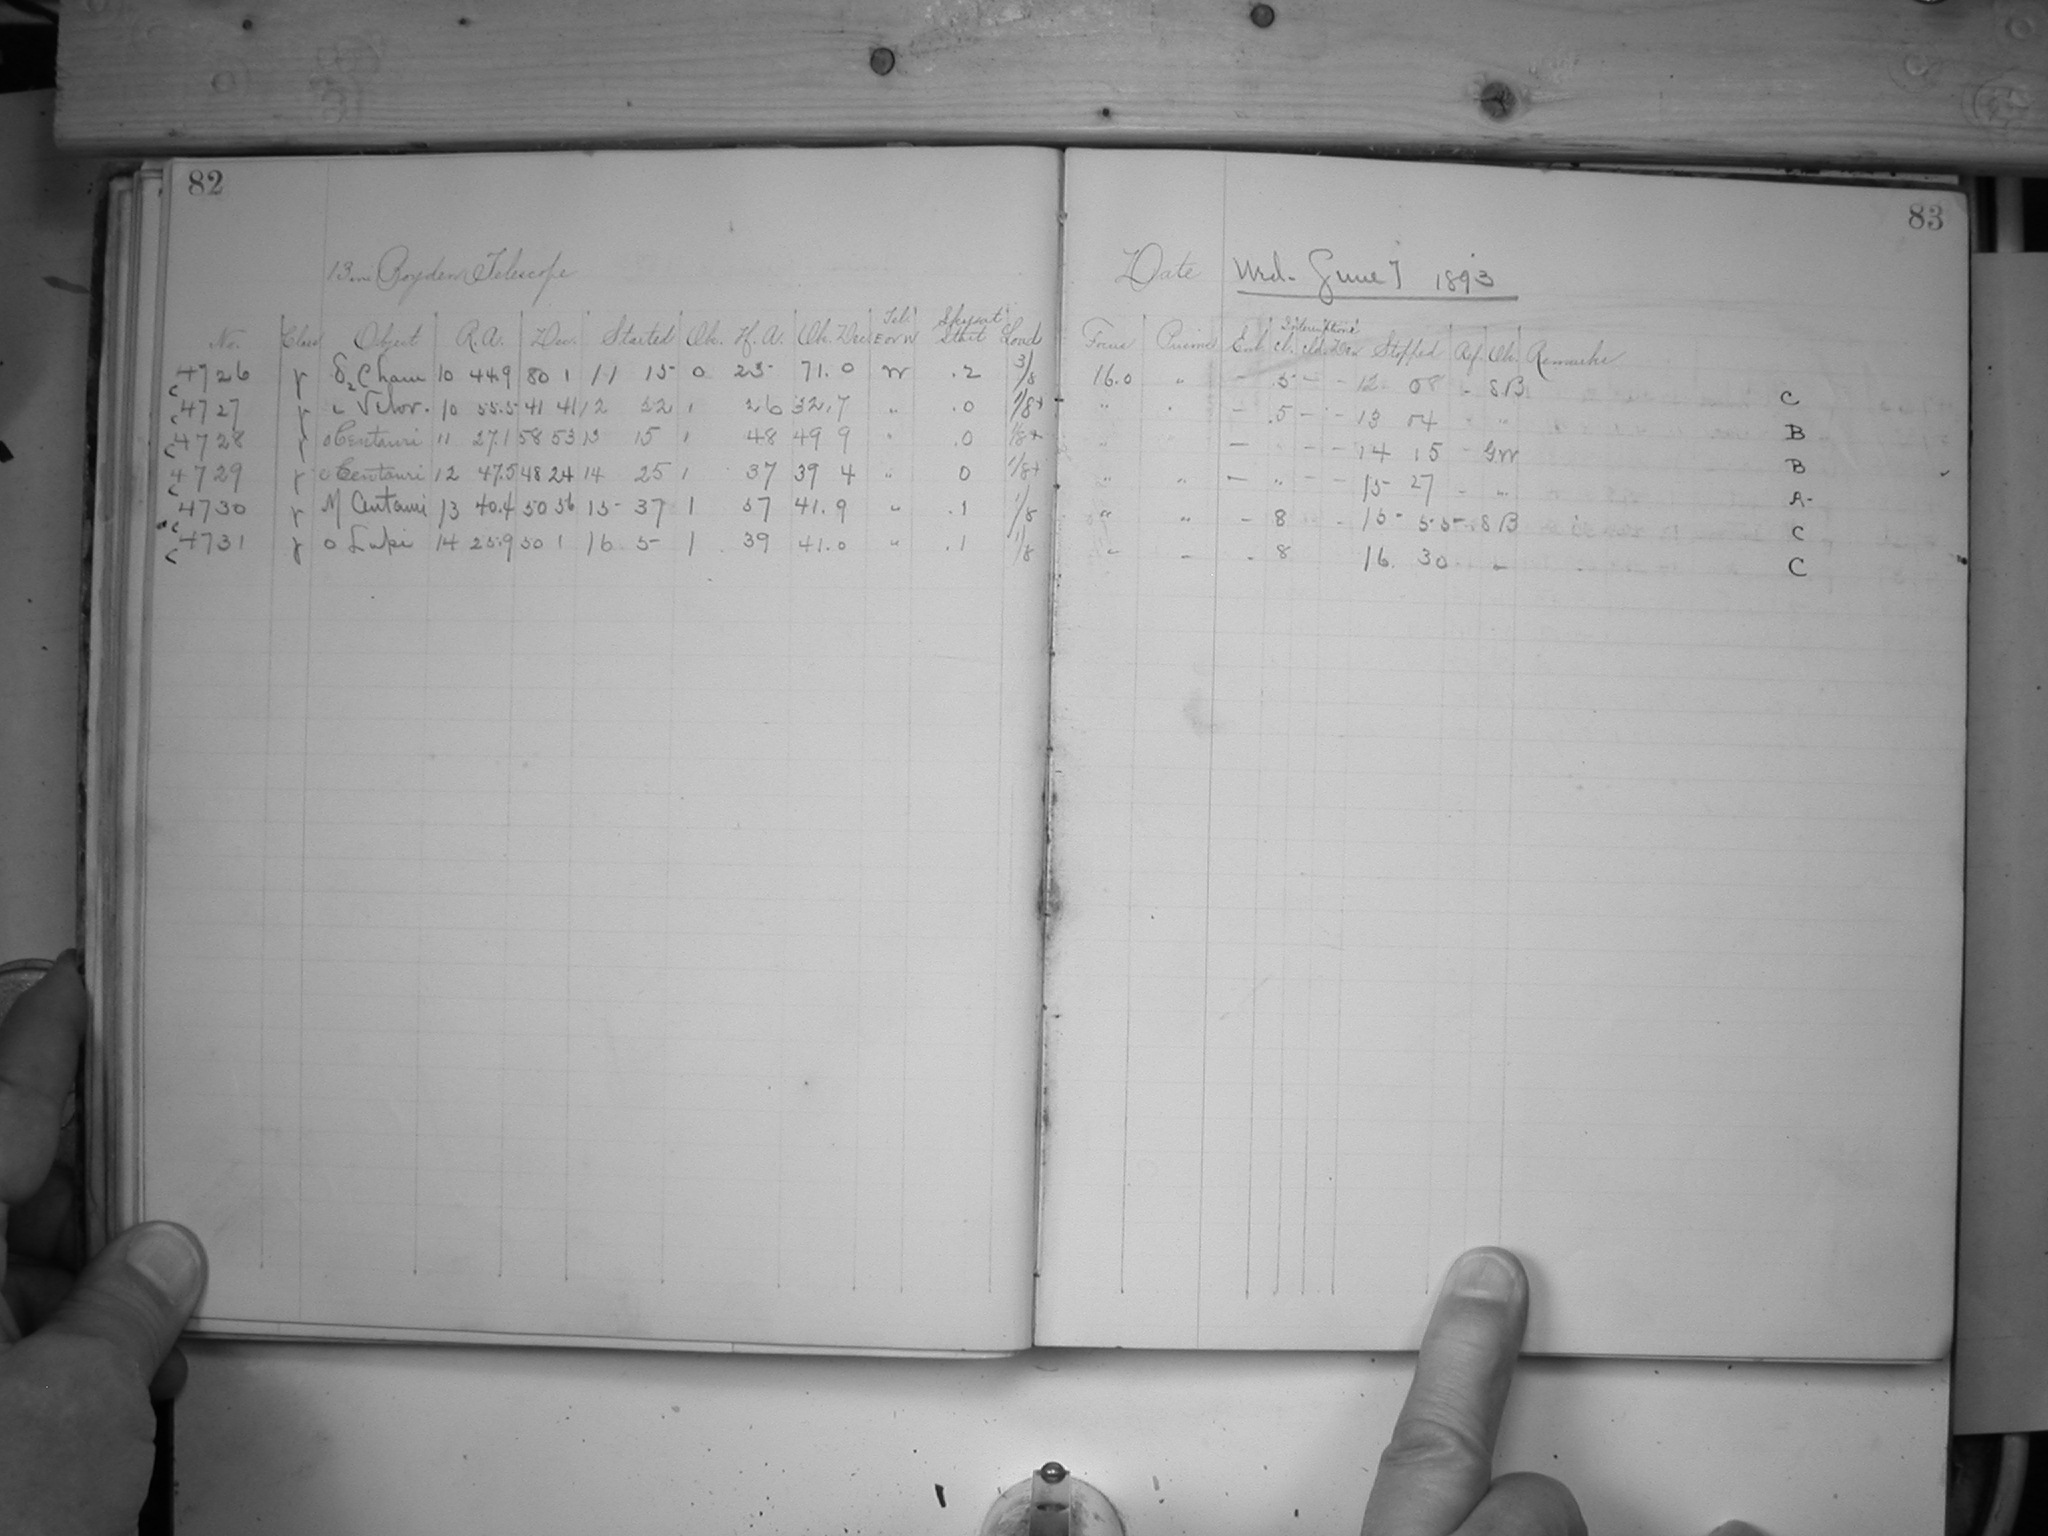 82
13in Boyden Telescope
No. Class Object R.A. Dec. Started Ob. H.A. Ob. Dec. Tel. E or W Skyport Start Load
4726 γ δ2 Cham 10 44.9 80 1 11 15 0 25 71.0 W .2 3/8
4727 γ i Velor. 10 55.5 41 41 12 32 1 26 32.7 " .0 1/8+
4728 γ o Centauri 11 27.1 58 53 13 15 1 48 49 9 " .0 1/8+
4729 γ c Centauri 12 47.5 48 24 14 25 1 37 39 4 " 0 1/8+
4730 γ M Centauri 13 40.4 50 56 15 37 1 57 41.9 " .1 1/8
4731 γ o Lupi 14 25.9 50 1 16 5 1 39 41.0 " .1 1/8
83
Date Wed. June 7 1893
Focus Prisms Interruptions Cl. Stopped Ref. Ob. Remarks
16.0 " - .5 - - 12 08 - SB C
" " - .5 - - 13 04 " " B
" " - - - 14 15 - GW B
" " - " - - 15 27 - " A-
" " - 8 - 15 55 - SB C
" - - 8 16. 30 " C